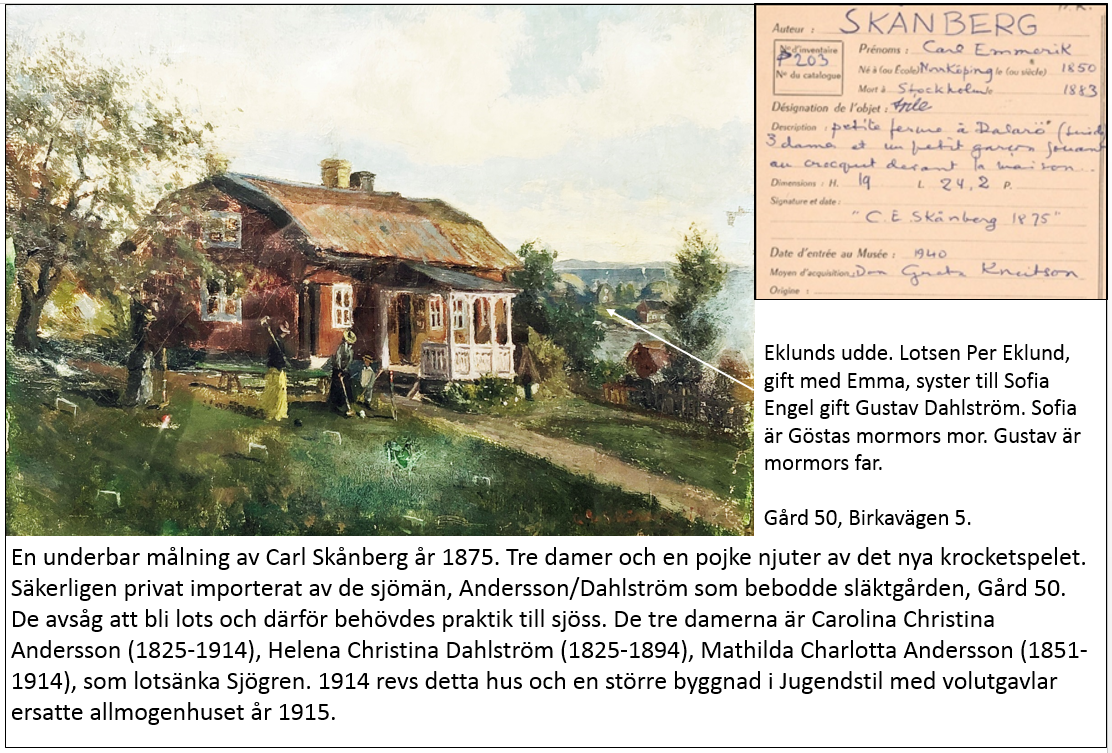 Auteur : SKÅNBERG
N° d'inventaire
P 203
N° du catalogue
Prénoms : Carl Emmerik
Né à (ou École) Norrköping le (ou siècle) 1850
Mort à Stockholm le 1883
Désignation de l'objet : toile
Description : petite ferme à Dalarö
3 dama et un petit garçon jouant
au crocquet devant la maison...
Dimensions : H. 19 L 24,2 P.
Signature et date :
"C. E. Skånberg 1875"
Date d'entrée au Musée : 1940
Moyen d'acquisition Don Greta Knutson
Origine :
Eklunds udde. Lotsen Per Eklund,
gift med Emma, syster till Sofia
Engel gift Gustav Dahlström. Sofia
är Göstas mormors mor. Gustav är
mormors far.
Gård 50, Birkavägen 5.
En underbar målning av Carl Skånberg år 1875. Tre damer och en pojke njuter av det nya krocketspelet.
Säkerligen privat importerat av de sjömän, Andersson/Dahlström som bebodde släktgården, Gård 50.
De avsåg att bli lots och därför behövdes praktik till sjöss. De tre damerna är Carolina Christina
Andersson (1825-1914), Helena Christina Dahlström (1825-1894), Mathilda Charlotta Andersson (1851-
1914), som lotsänka Sjögren. 1914 revs detta hus och en större byggnad i Jugendstil med volutgavlar
ersatte allmogenhuset år 1915.